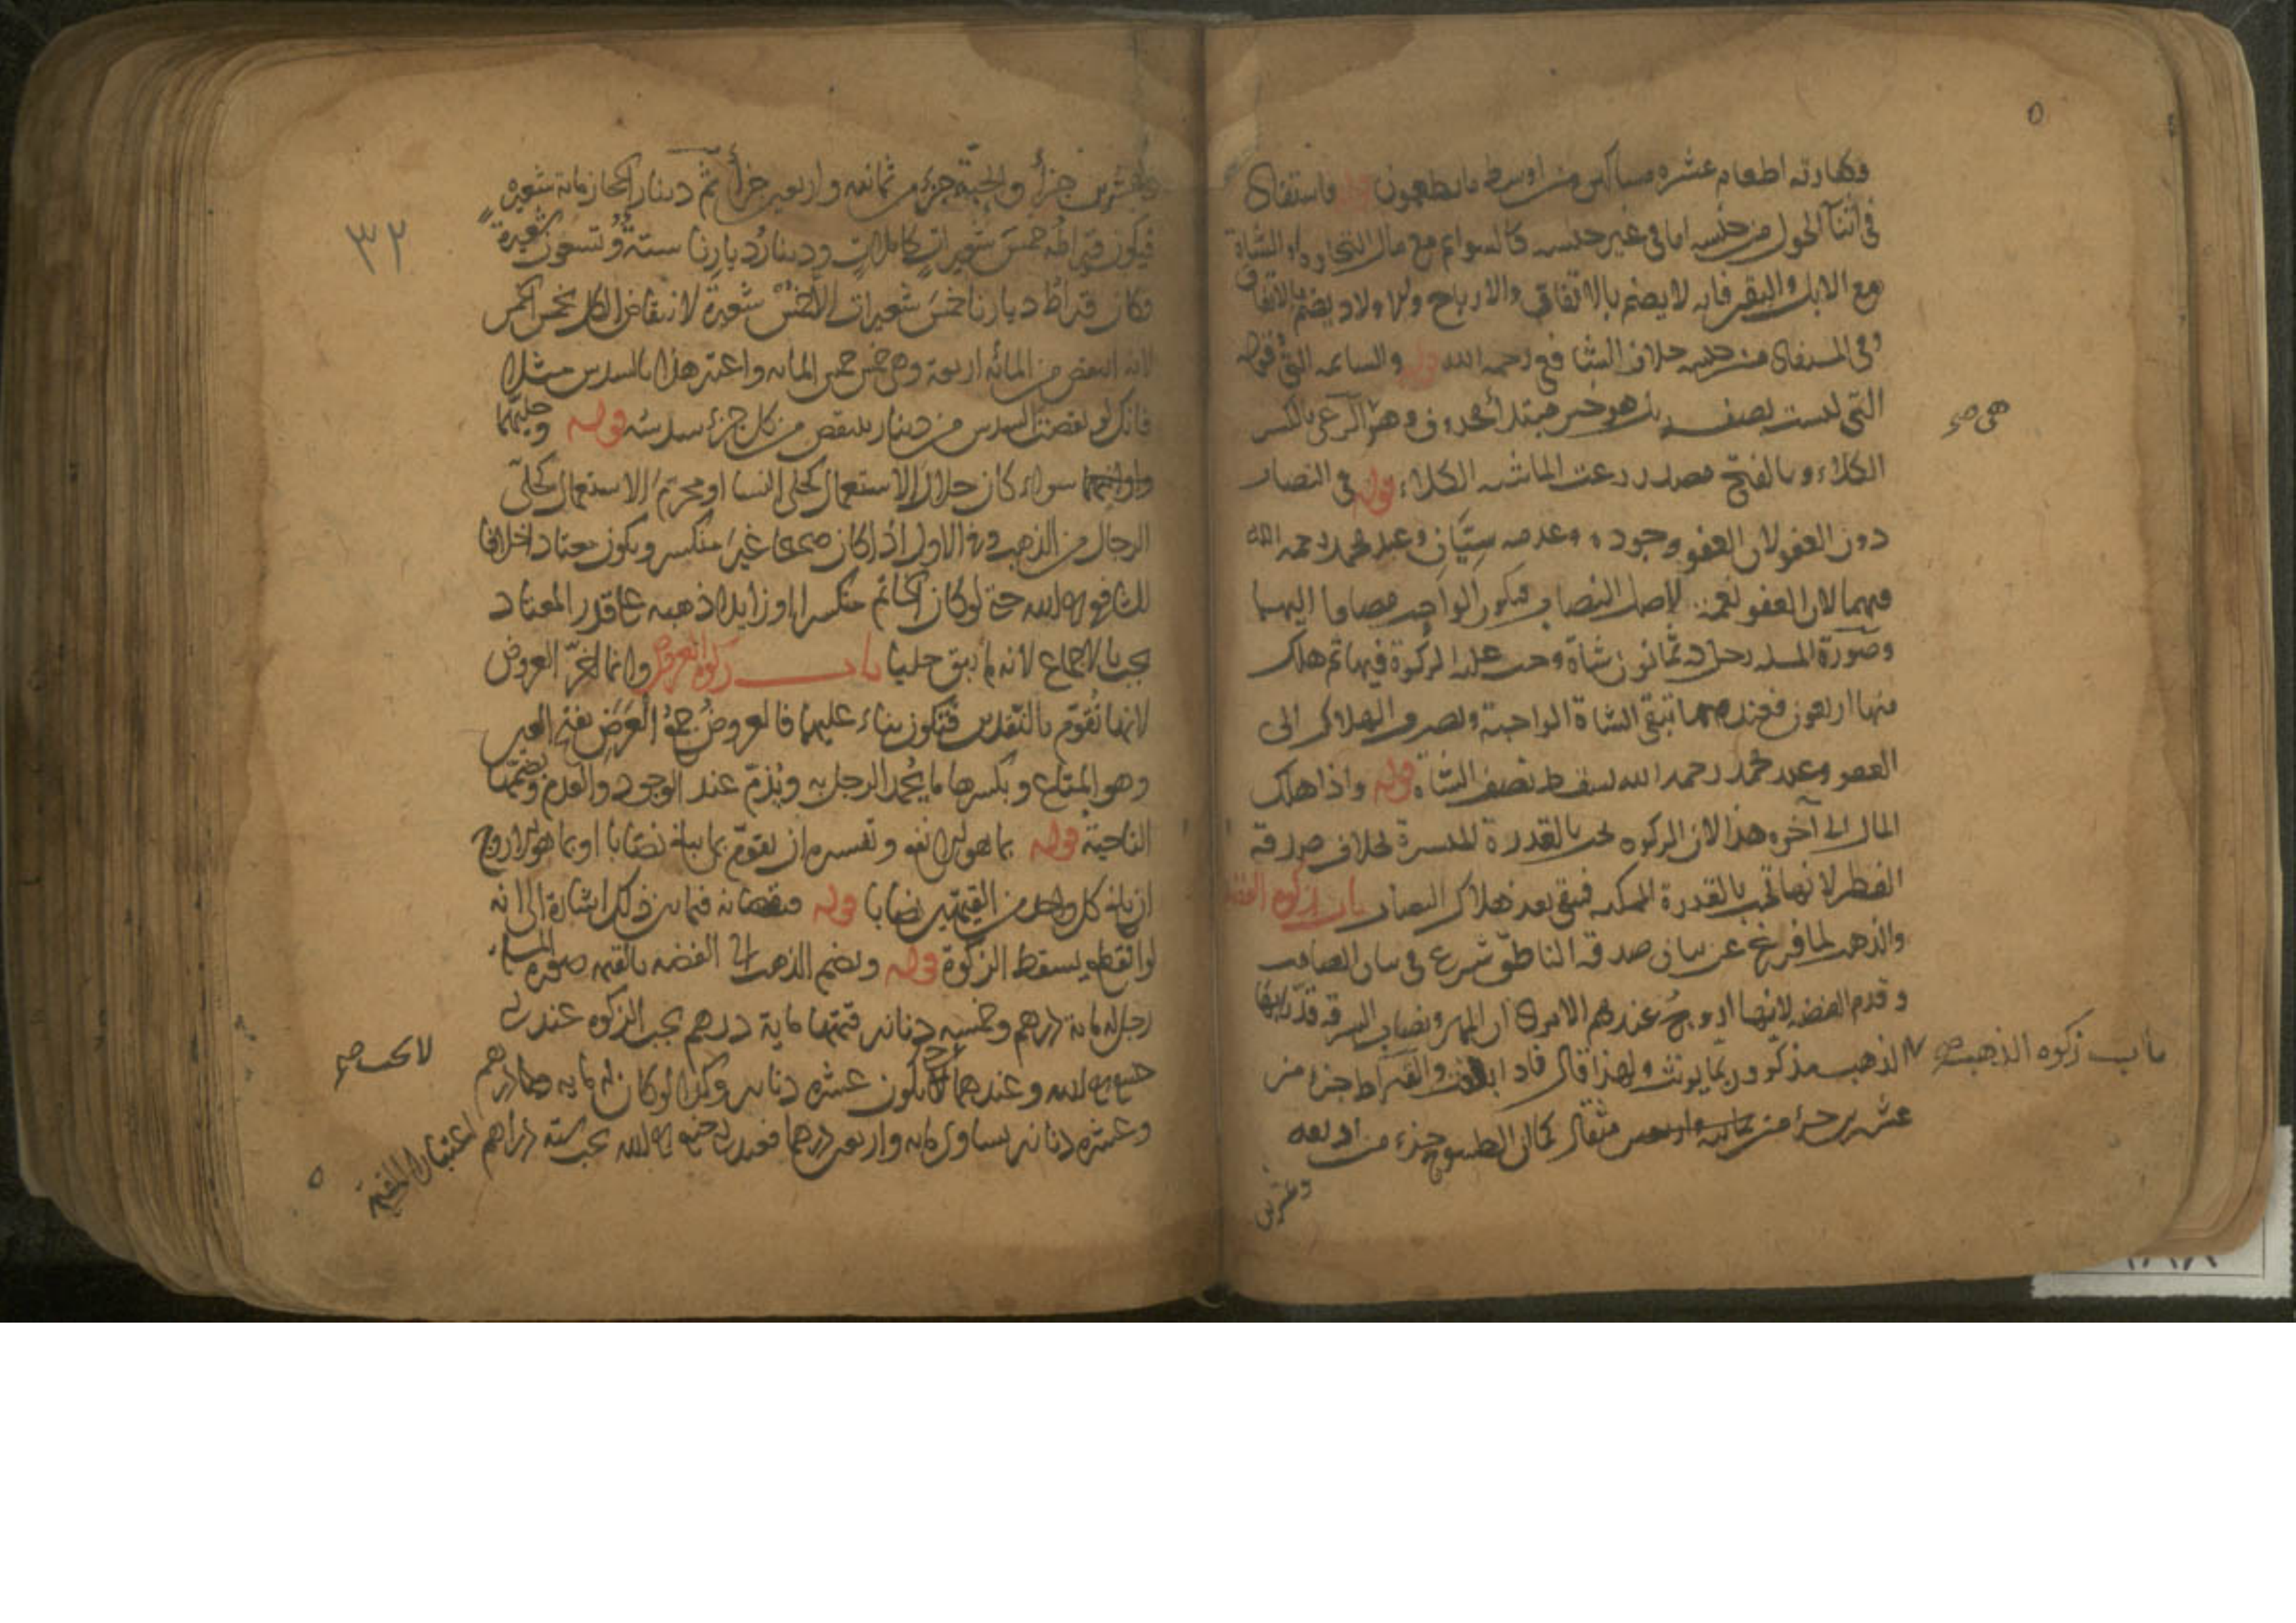 وكفارته اطعام عشرة مساكين من اوسط ما تطعمون قوله فاستفاد
في اثنآ الحول من جنسه اما في غير جنسه كالسوائم مع مال التجارة او الشاة
مع الابل والبقر فانه لا يضم بالاتفاق والارباح والاولاد يضم بالاتفاق
وفي المستفاد من جنسه خلاف الشافعي رحمه الله قوله والسائمه التي فقوله
التي ليست بصفة بل هو خبر مبتدأ محذوف وهو الرعي بالكسر
هي صح
الكلاء وبالفتح مصدر رعت الماشيه الكلاء قوله في النصاب
دون العفو لان العفو وجوده وعدمه سيّان وعند محمد رحمه الله
فيهما لان العفو لاصل النصاب فيكون الواجب مضافا اليهما
وصورة المسله رجل له ثمانون شاة وجب عليه الزكوة فيها ثم هلك
منها اربعون فعندهما تبقى الشاة الواجبة ويصرف الهلاك الى
العفو وعند محمد رحمه الله يسقط نصف الشاة قوله واذا هلك
المال الى آخره هذا لان الزكوه تجب بالقدرة الميسرة بخلاف صدقة
الفطر لانها تجب بالقدرة الممكنه فيبقى بعد هلاك النصاب باب زكوة الفضة
والذهب لما فرغ عن بيان صدقة الناطق شرع في بيان الصامت
وقدم الفضه لانها اروج عندهم الا يرى ان المهر ونصاب السرقه قدّر بها
باب زكوه الذهب صح
الذهب مذكّر وربّما يونث ولهذا قال والقيراط جزء من
عشرين جزء من مثقال كما ان الطسوج جزء من اربعه
وعشرين
٣٢
وعشرين جزأ والحبّة جزء من ثمانيه واربعين جزأ ثم دينار الحجاز مائة شعيره
فيكون قيراطه خمس شعيرات كاملات ودينار ديارنا ستة وتسعون شعيرة
فكان قيراط ديارنا خمس شعيرات الا خمس شعيرة لانتقاض الكل بخمس الخمس
لانه انتقص من المائه اربعة وهي خمس خمس المائه واعتبر هذا بالسدس مثلا
فانك لو نقصت السدس من دينار ينتقص من كل جزء سدسه قوله وحليّهما
واوانيهما سواء كان حلال الاستعمال كحلي النسا او محرّم الاستعمال كحليّ
الرجال من الذهب وفي الاول اذا كان صحيحا غير منكسر ويكون معتادا خلافا
للشافعي رحمه الله حتى لو كان الخاتم منكسرا او زايدا ذهبه على قدر المعتاد
يجب بالاجماع لانه لم يبق حليا باب زكوة العروض وانما اخّر العروض
لانها تُقوّم بالنقدين فتكون بناء عليهما فالعروض جمع العرض بفتح العين
وهو المتاع وبكسرها ما يُحمد الرجل به ويُذمّ عند الوجود والعدم وبضمّها
الناحية قوله بما هو انفع وتفسيره ان يقوّم بما يبلغ نصابا او بما هو اروج
ان بلغ كل واحد من القيمتين نصابا قوله فنقصانه فيما بين ذلك اشارة الى انه
لو انقطع يسقط الزكوة قوله ويضم الذهب الى الفضه بالقيمه صورة المسله
رجل له مائة درهم وخمسه دنانير قيمتها ماية درهم يجب الزكوه عند ابي
حنيفه رحمه الله وعندهما لا يكون عشره دنانير وكذا لو كان له مايه درهم
لا يجب صح
وعشره دنانير يساوي مايه واربعين درهما فعند ابي حنيفه رحمه الله يجب ستة دراهم اعتبارا للقيمة